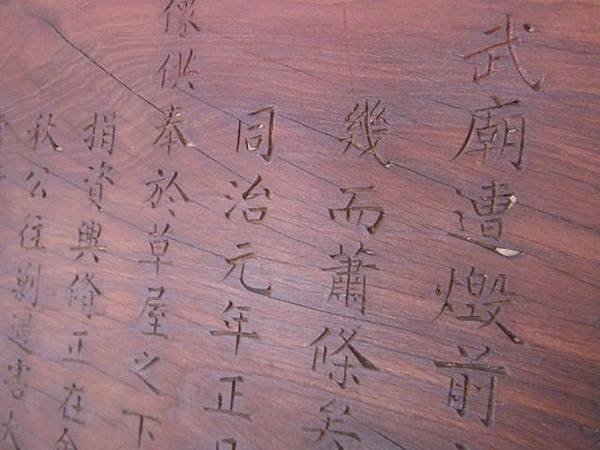 武廟遭燬前
幾而蕭條矣
同治元年正
像供奉於草屋之下
捐資興脩正在
秋公往剿遇害大